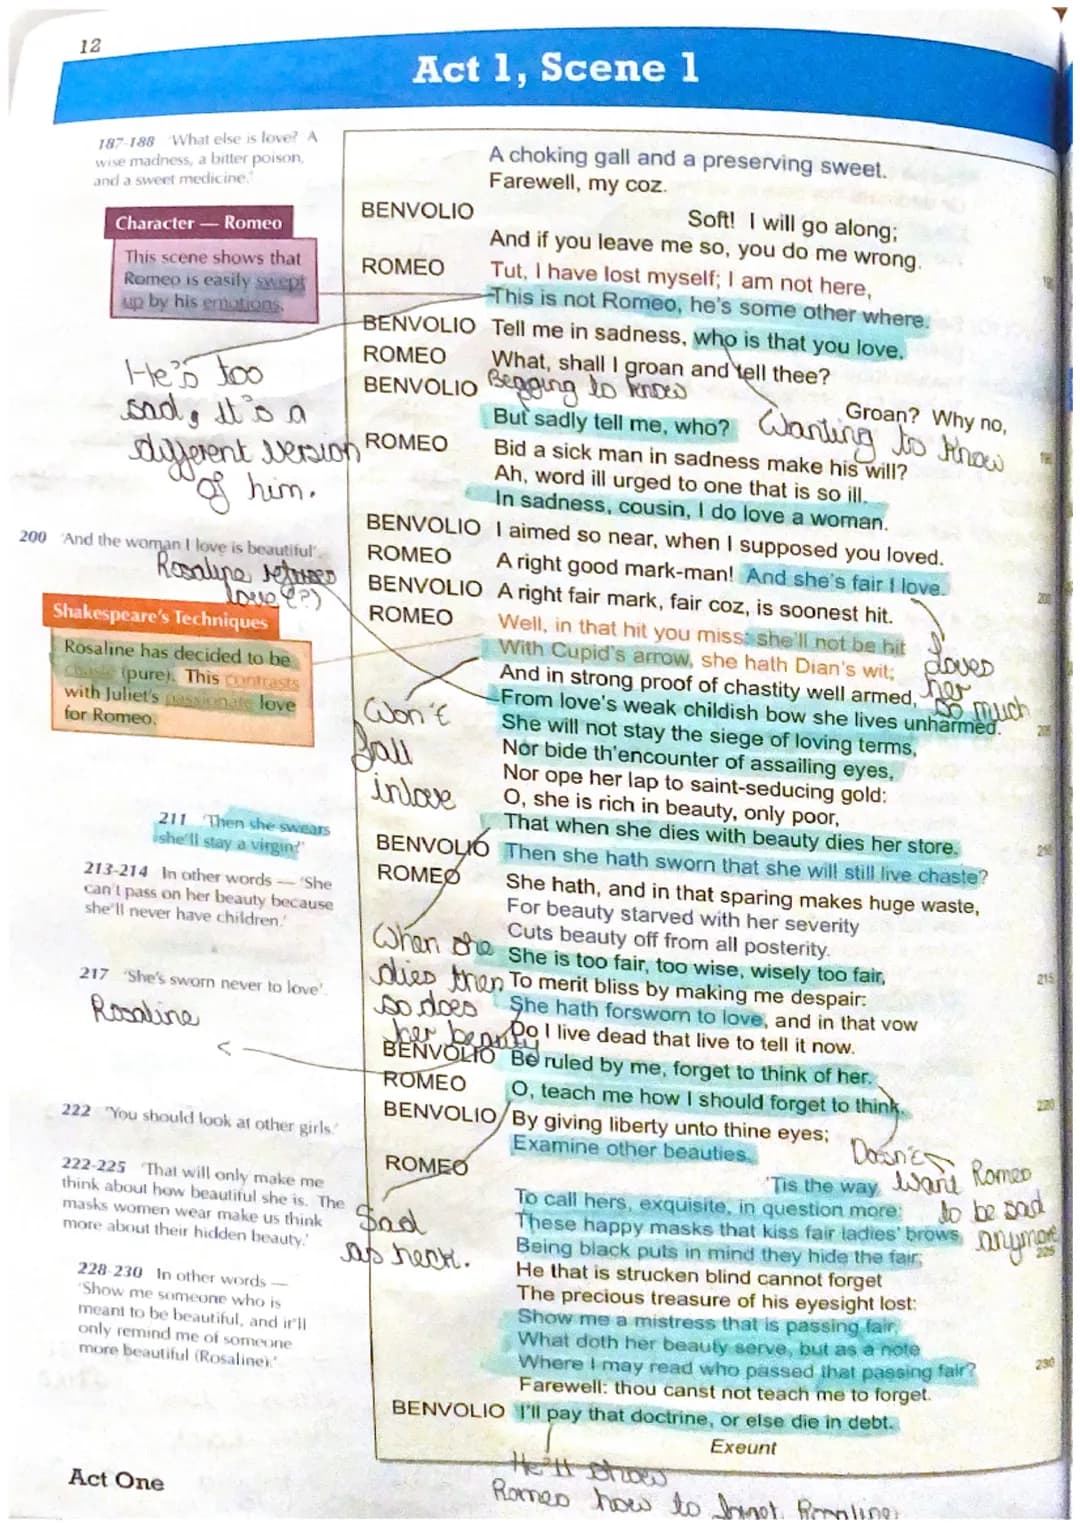 12
Act 1, Scene 1
187-188 'What else is love? A
wise madness, a bitter poison,
and a sweet medicine.'
Character — Romeo
This scene shows that
Romeo is easily swept
up by his emotions.
He's too
sad, it's a
different version
of him.
200 'And the woman I love is beautiful'
Rosalype refuses
love (?)
Shakespeare's Techniques
Rosaline has decided to be
chaste (pure). This contrasts
with Juliet's passionate love
for Romeo.
Won't
fall
in love
211 'Then she swears
she'll stay a virgin?'
213-214 In other words — 'She
can't pass on her beauty because
she'll never have children.'
When she
dies then
so does
her beauty
217 'She's sworn never to love'.
Rosaline
222 'You should look at other girls.'
222-225 'That will only make me
think about how beautiful she is. The
masks women wear make us think
more about their hidden beauty.'
Sad
as heck.
228-230 In other words —
'Show me someone who is
meant to be beautiful, and it'll
only remind me of someone
more beautiful (Rosaline).'
A choking gall and a preserving sweet.
Farewell, my coz.
BENVOLIO Soft! I will go along;
And if you leave me so, you do me wrong.
ROMEO Tut, I have lost myself; I am not here,
This is not Romeo, he's some other where.
BENVOLIO Tell me in sadness, who is that you love.
ROMEO What, shall I groan and tell thee?
BENVOLIO Groan? Why no,
Begging to know
But sadly tell me, who?
Wanting to know
ROMEO Bid a sick man in sadness make his will?
Ah, word ill urged to one that is so ill.
In sadness, cousin, I do love a woman.
BENVOLIO I aimed so near, when I supposed you loved.
ROMEO A right good mark-man! And she's fair I love.
200
BENVOLIO A right fair mark, fair coz, is soonest hit.
ROMEO Well, in that hit you miss: she'll not be hit
With Cupid's arrow, she hath Dian's wit;
And in strong proof of chastity well armed,
From love's weak childish bow she lives unharmed.
205
Loves
her
so much
She will not stay the siege of loving terms,
Nor bide th'encounter of assailing eyes,
Nor ope her lap to saint-seducing gold:
O, she is rich in beauty, only poor,
That when she dies with beauty dies her store.
210
BENVOLIO Then she hath sworn that she will still live chaste?
ROMEO She hath, and in that sparing makes huge waste,
For beauty starved with her severity
Cuts beauty off from all posterity.
She is too fair, too wise, wisely too fair,
215
To merit bliss by making me despair:
She hath forsworn to love, and in that vow
Do I live dead that live to tell it now.
BENVOLIO Be ruled by me, forget to think of her.
ROMEO O, teach me how I should forget to think.
220
BENVOLIO By giving liberty unto thine eyes;
Examine other beauties.
Doesn't
want Romeo
to be sad
anymore
ROMEO 'Tis the way
To call hers, exquisite, in question more:
These happy masks that kiss fair ladies' brows
225
Being black puts in mind they hide the fair;
He that is strucken blind cannot forget
The precious treasure of his eyesight lost:
Show me a mistress that is passing fair,
What doth her beauty serve, but as a note
230
Where I may read who passed that passing fair?
Farewell: thou canst not teach me to forget.
BENVOLIO I'll pay that doctrine, or else die in debt.
Exeunt
He'll show
Romeo how to forget Rosaline
Act One